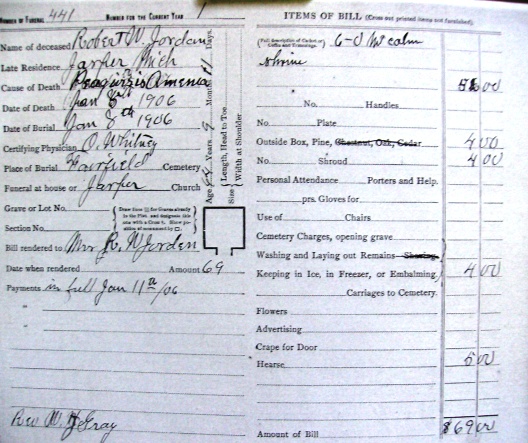 NUMBER OF FUNERAL 441 NUMBER FOR THE CURRENT YEAR 1
Name of deceased Robert W Jordan
Late Residence Jasper Mich
Cause of Death
Date of Death Jan 1906
Date of Burial Jan 8th 1906
Certifying Physician O. Whitney
Place of Burial Fairfield Cemetery
Funeral at house or Jasper Church
Grave or Lot No.
Section No.
Bill rendered to Mrs R. W Jorden
Date when rendered Amount 69
Payments in full Jan 11th/06
"
"
Rev W.
Age Years 9 Months Days
Size { Length, Head to Toe
Width at Shoulder
ITEMS OF BILL (Cross out printed items not furnished).
6-0
shrine
55 00
No. Handles
No. Plate
Outside Box, Pine, Chestnut, Oak, Cedar 4 00
No. Shroud 4 00
Personal Attendance Porters and Help.
prs. Gloves for
Use of Chairs
Cemetery Charges, opening grave
Washing and Laying out Remains
Keeping in Ice, in Freezer, or Embalming 4 00
Carriages to Cemetery.
Flowers
Advertising
Crape for Door
Hearse
Amount of Bill $69 00